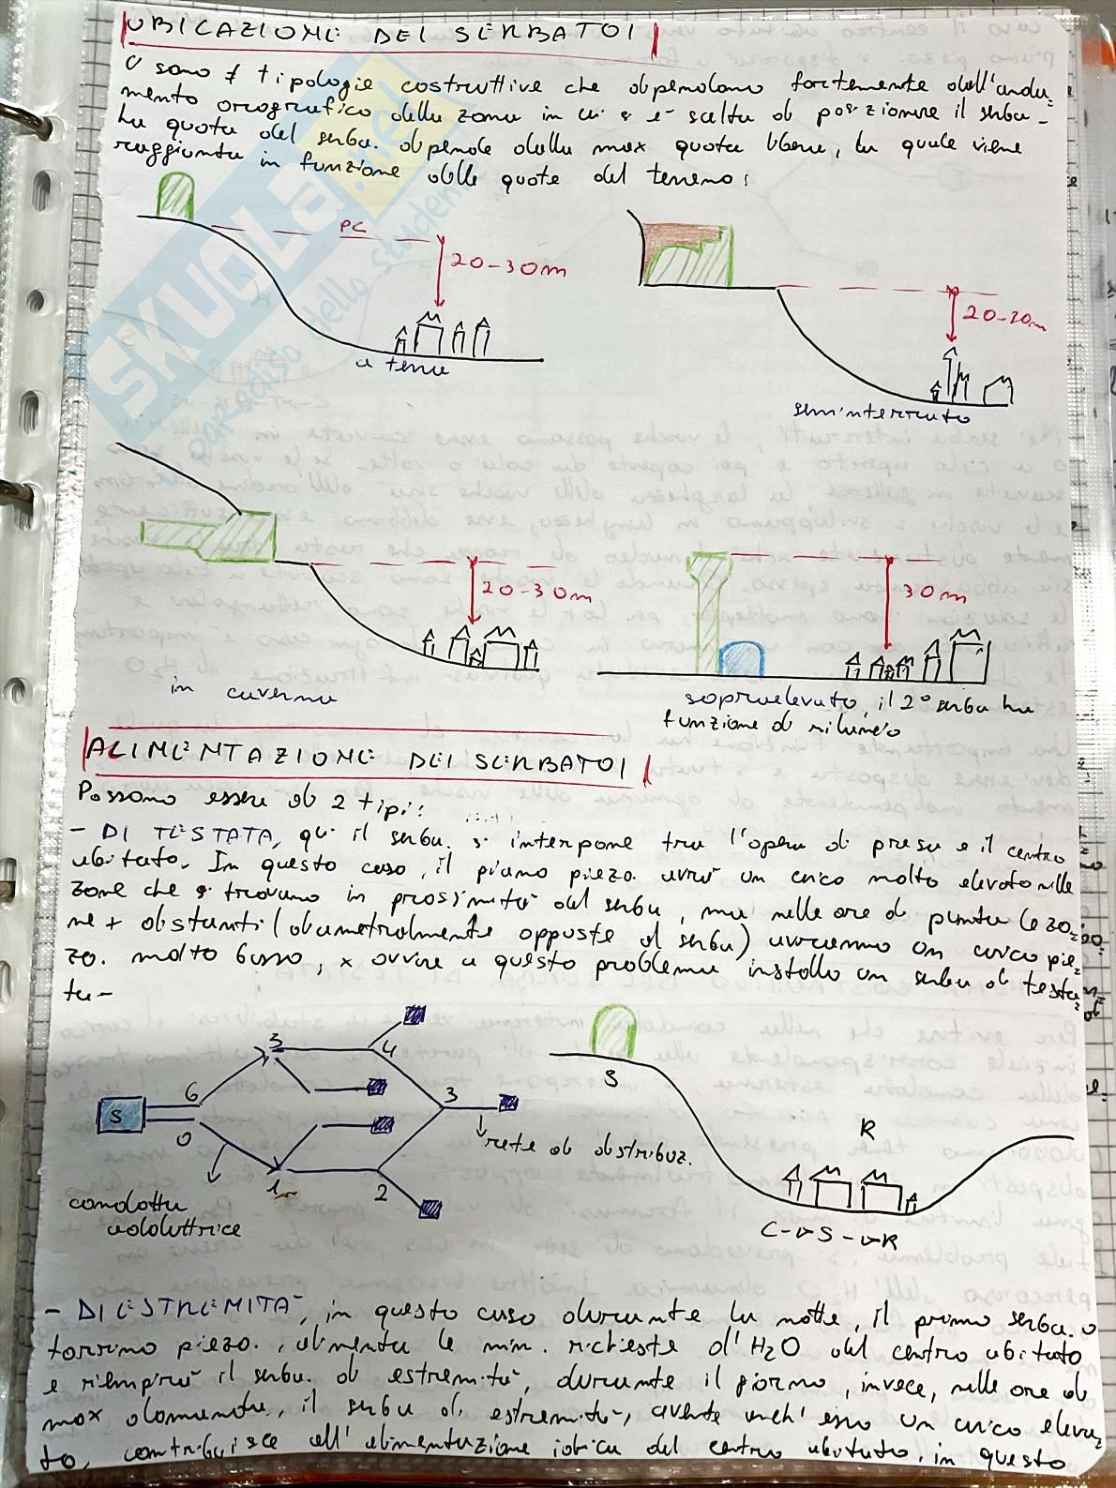 UBICAZIONE DEI SERBATOI
Ci sono 4 tipologie costruttive che dipendono fortemente dall'anda=
mento orografico della zona in cui si è scelto di posizionare il serba-
La quota del serba. dipende dalla max quota libera, la quale viene
raggiunta in funzione delle quote del terreno:
PC
20-30m
20-20m
a terra
seminterrato
20-30m
30m
in caverna
sopraelevato, il 2° serba ha
funzione di rilancio
ALIMENTAZIONE DEI SERBATOI
Possono essere di 2 tipi:
- DI TESTATA, qui il serba. si interpone tra l'opera di presa e il centro
abitato. In questo caso, il piano piezo. avrà un carico molto elevato nelle
zone che si trovano in prossimità del serba, ma nelle ore di punta le zo=
ne + distanti (diametralmente opposte al serba) avranno un carico pie=
zo. molto basso, x ovviare a questo problema installo un serba di testa=
ta-
S
6
0
5
4
3
1
2
condotta
adduttrice
rete di distribuz.
S
R
C-S-R
- DI ESTREMITÀ, in questo caso durante la notte, il primo serba. o
torrino piezo., alimenta le min. richieste d'H2O del centro abitato
e riempirà il serba. di estremità, durante il giorno, invece, nelle ore di
max domanda, il serba di estremità, avente anch'esso un carico eleva=
to, contribuisce all'alimentazione idrica del centro abitato, in questo
SKUOLA.net
paradiso dello studente